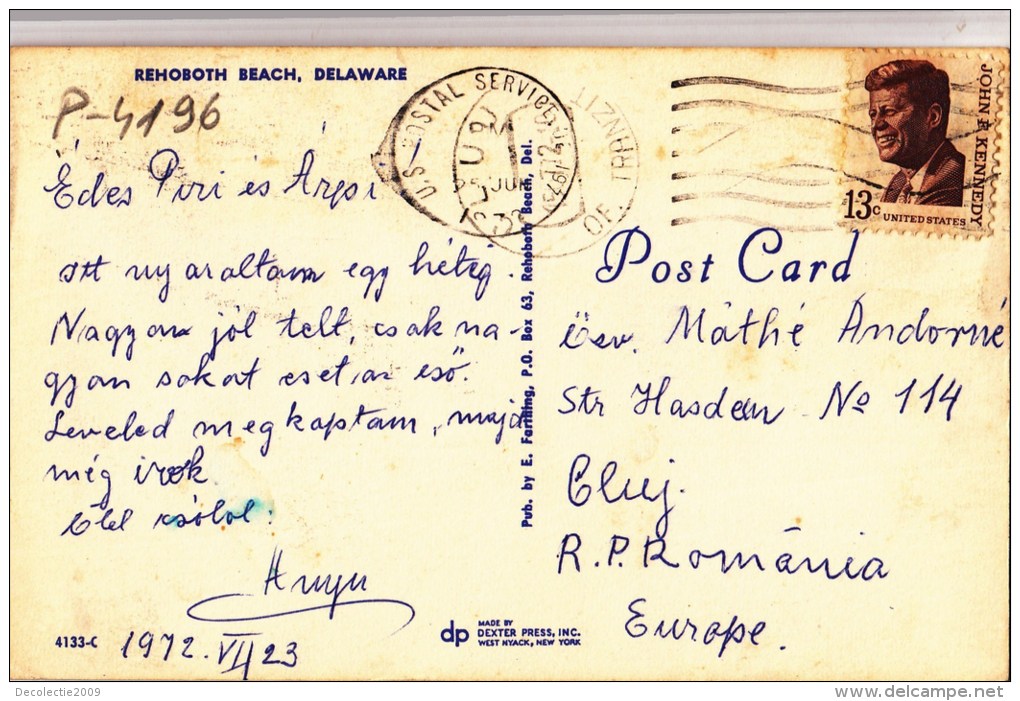 REHOBOTH BEACH, DELAWARE
P-4196
U.S. POSTAL SERVICE
JOHN F. KENNEDY
13c
UNITED STATES
Édes Piri és Árpi
itt nyaraltam egy hétig.
Nagyon jól telt, csak na-
gyon sokat eset az eső.
Leveled megkaptam, majd
még irok.
Ölel csólol:
Anyu
1972. VII 23
4133-C
Pub. by E. Farming, P.O. Box 63, Rehoboth Beach, Del.
Post Card
Özv. Máthé Andorné
Str Hasdeu No 114
Cluj.
R.P. România
Europe.
dp
MADE BY
DEXTER PRESS, INC.
WEST NYACK, NEW YORK
Decolectie2009
www.delcampe.net